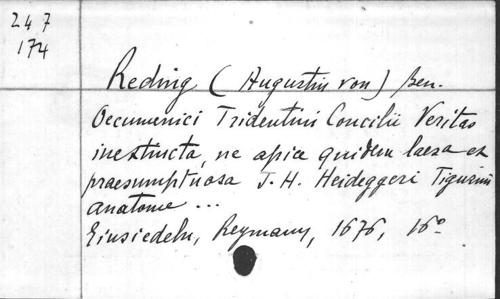 247
174
Reding (Augustin von) Ben.
Oecumenici Tridentini Concilii Veritas
inextincta, ne apice quidem laesa ex
praesumptuosa J. H. Heideggeri Tigurini
anatome ...
Einsiedeln, Reymann, 1676, 16°